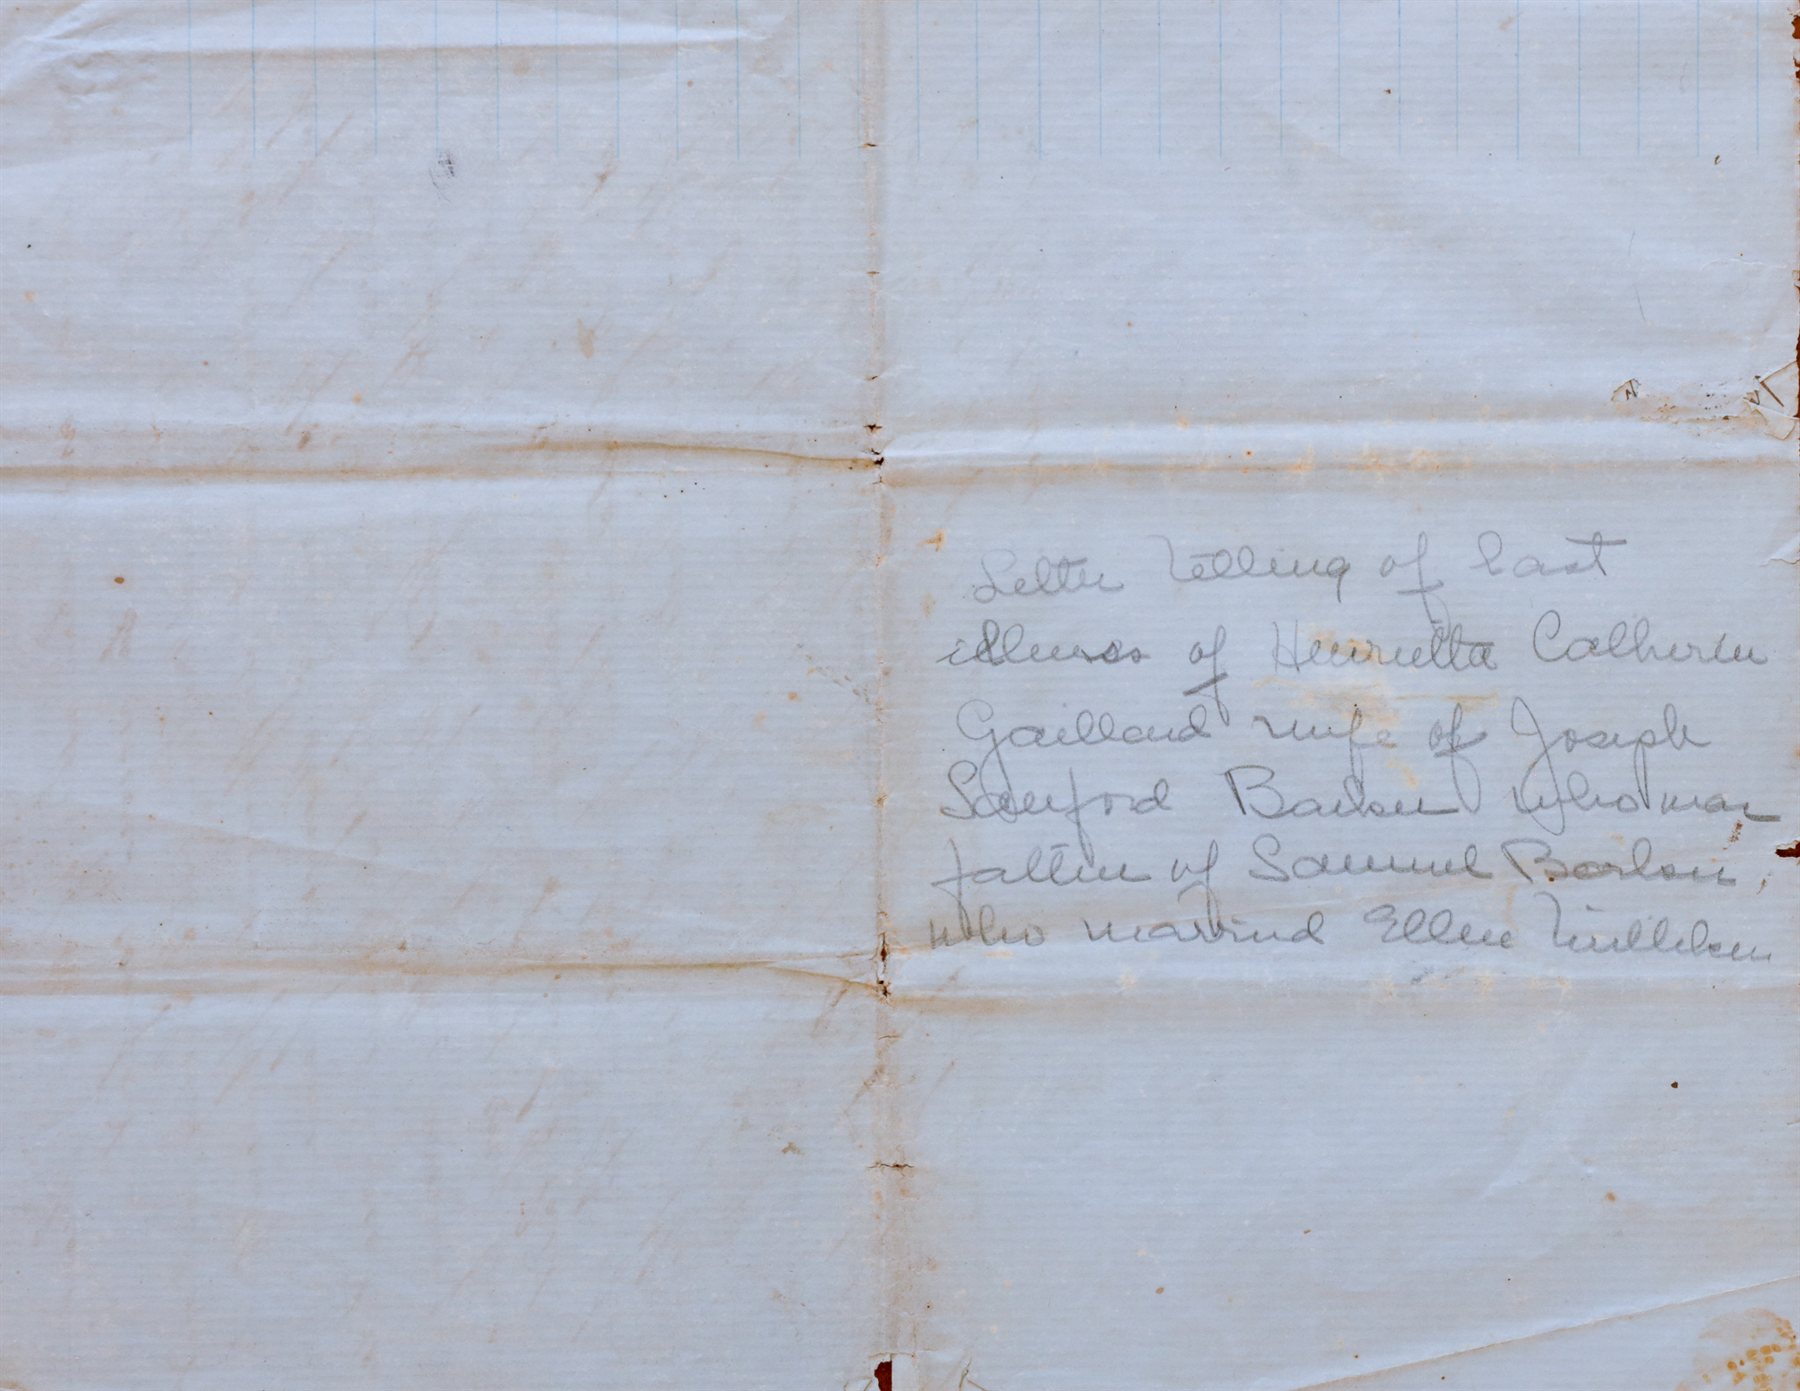 Letter telling of last
illness of Henrietta Catherine
Gaillard wife of Joseph
Sanford Barker who was
father of Samuel Barker,
who married Ellen Milliken